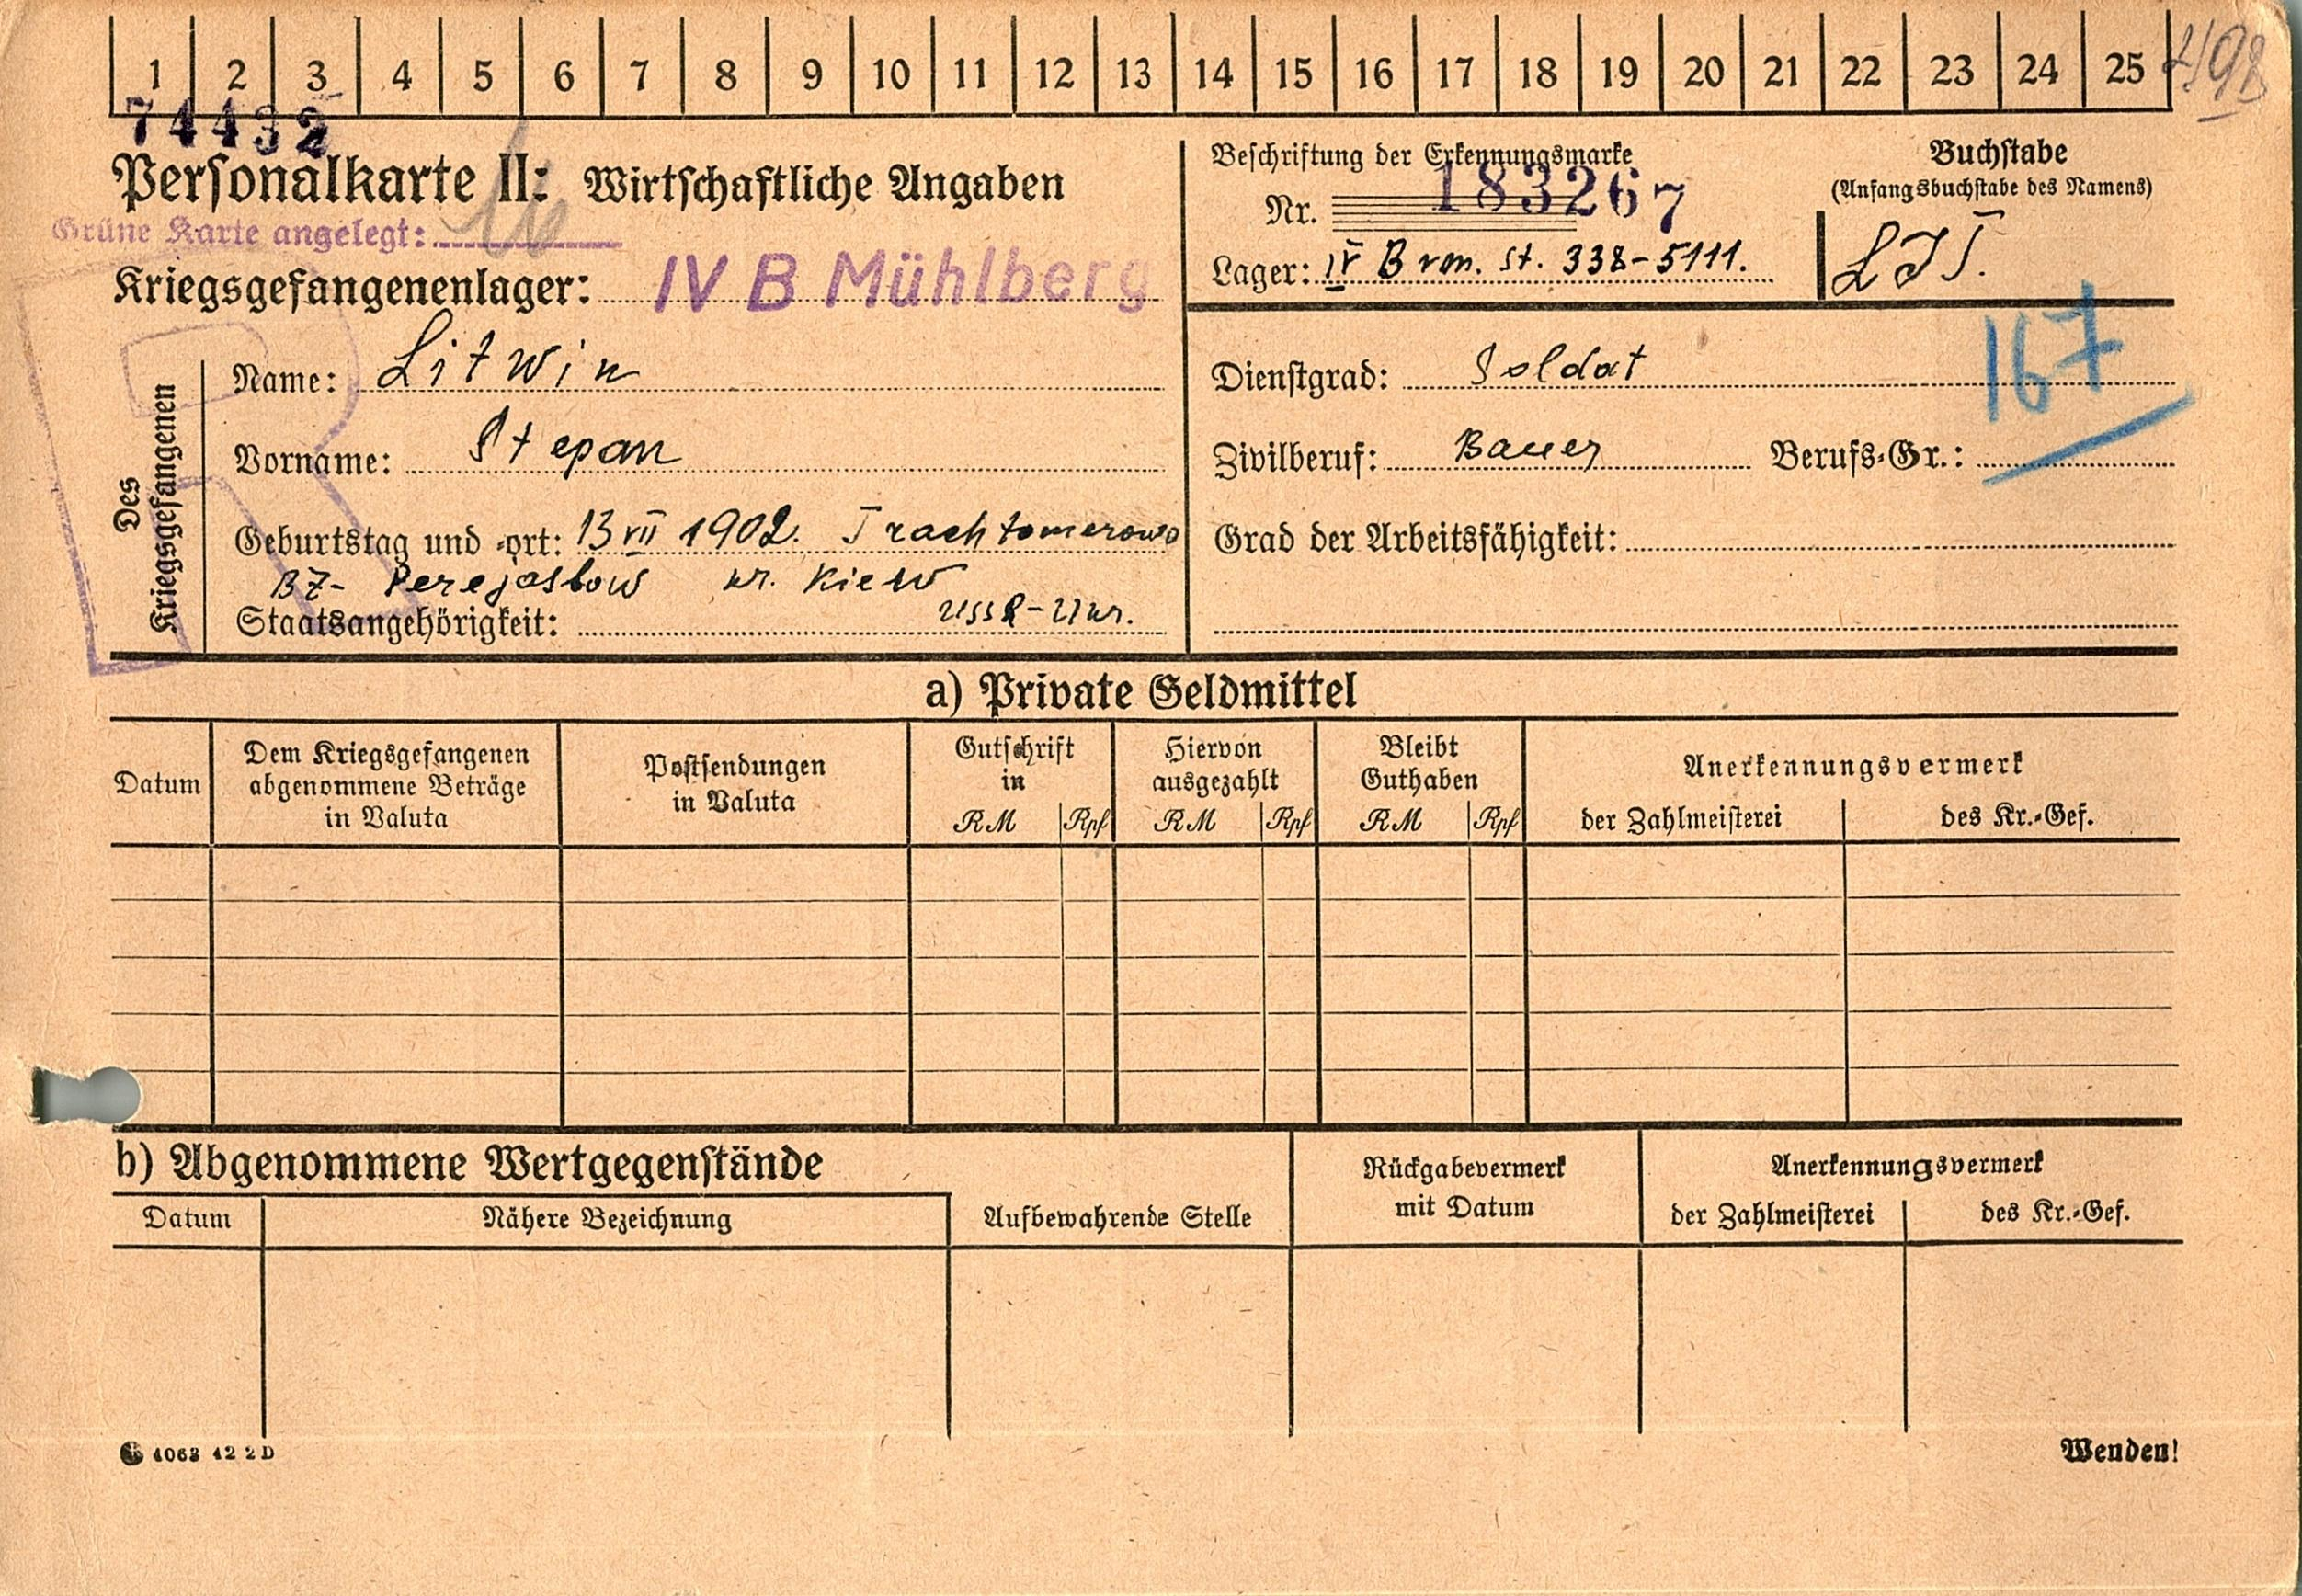 1 2 3 4 5 6 7 8 9 10 11 12 13 14 15 16 17 18 19 20 21 22 23 24 25
74432
Personalkarte II: Wirtschaftliche Angaben
Grüne Karte angelegt:
Kriegsgefangenenlager: IV B Mühlberg
Beschriftung der Erkennungsmarke
Nr. 183267
Lager: IV B von. St. 338-5111.
Buchstabe
(Anfangsbuchstabe des Namens)
LIT.
Des Kriegsgefangenen
Name: Litwin
Vorname: Stepan
Geburtstag und -ort: 13 VII 1902. Trachtomerowo
BZ- Perejaslow kr. Kiew
Staatsangehörigkeit: USSR-Ukr.
Dienstgrad: Soldat
167
Zivilberuf: Bauer Berufs-Gr.:
Grad der Arbeitsfähigkeit:
a) Private Geldmittel
Datum
Dem Kriegsgefangenen
abgenommene Beträge
in Valuta
Postsendungen
in Valuta
Gutschrift
in
RM Rpf
Hiervon
ausgezahlt
RM Rpf
Bleibt
Guthaben
RM Rpf
Anerkennungsvermerk
der Zahlmeisterei des Kr.-Gef.
b) Abgenommene Wertgegenstände
Datum Nähere Bezeichnung
Aufbewahrende Stelle
Rückgabevermerk
mit Datum
Anerkennungsvermerk
der Zahlmeisterei des Kr.-Gef.
4063 42 2 D
Wenden!